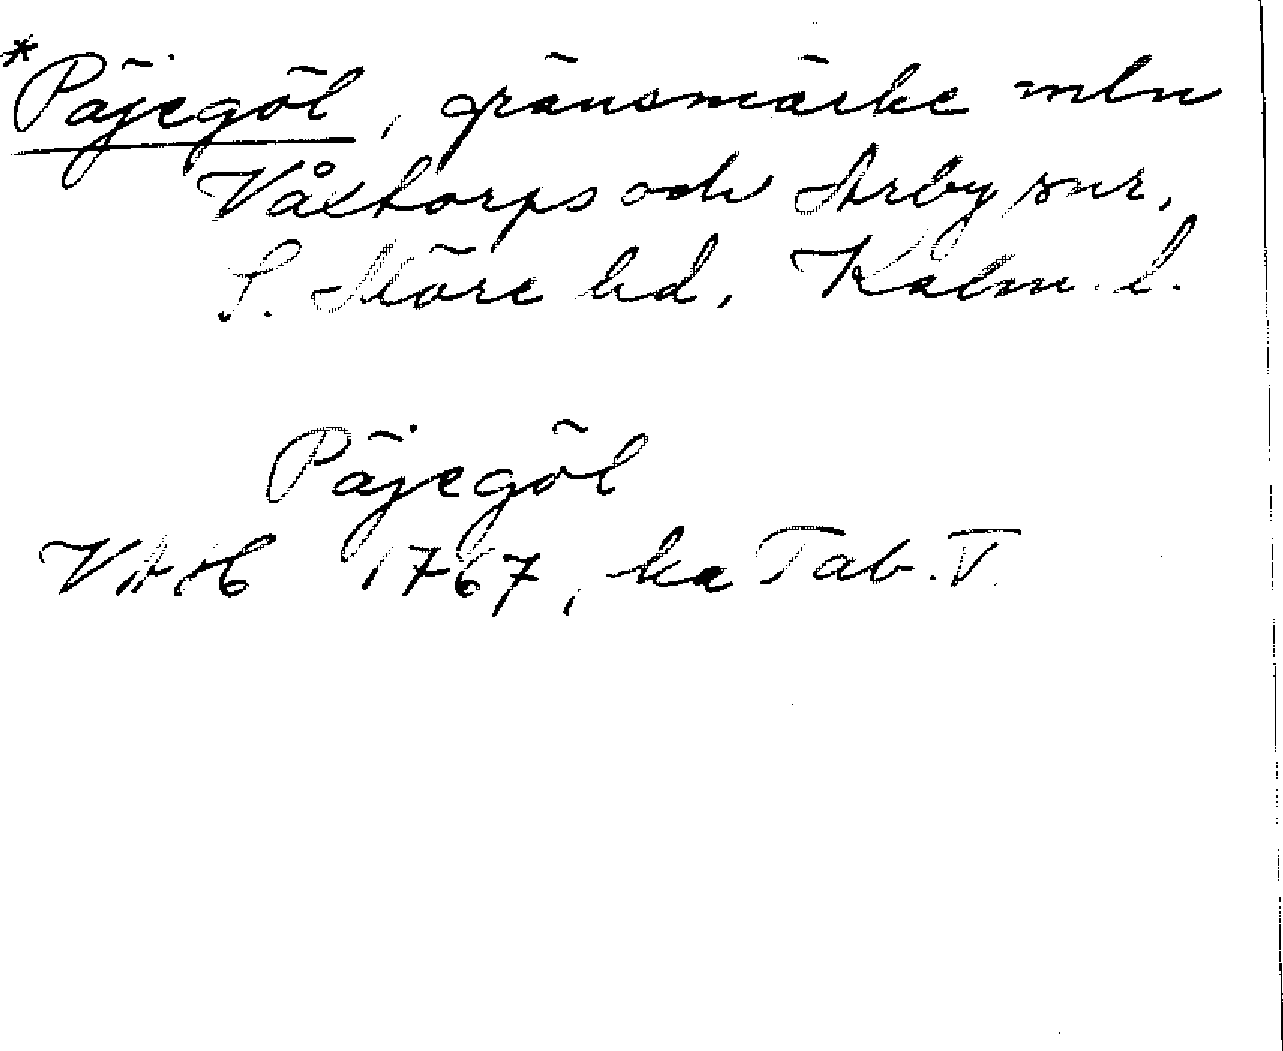 *Päjegöl, gränsmärke mln
Våxtorps och Arby snr,
S. Möre hd, Kalm. l.
Päjegöl
VAH 1767, ka Tab. V.